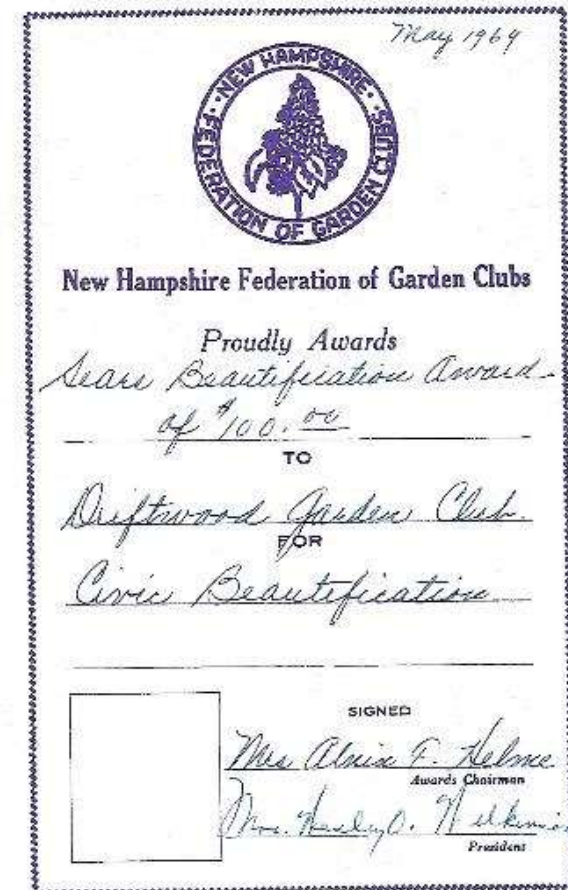 May 1969
NEW HAMPSHIRE
FEDERATION OF GARDEN CLUBS
New Hampshire Federation of Garden Clubs
Proudly Awards
Sears Beautification Award
of $100.00
TO
Driftwood Garden Club.
FOR
Civic Beautification
SIGNED
Mrs F. Helme
Awards Chairman
Mrs. O.
President